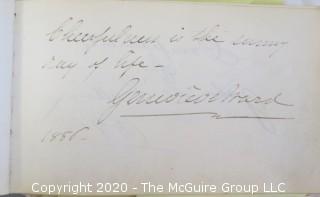 Cheerfulness is the sunny
ray of life -
Genevieve Ward
1885.
Copyright 2020 - The McGuire Group LLC